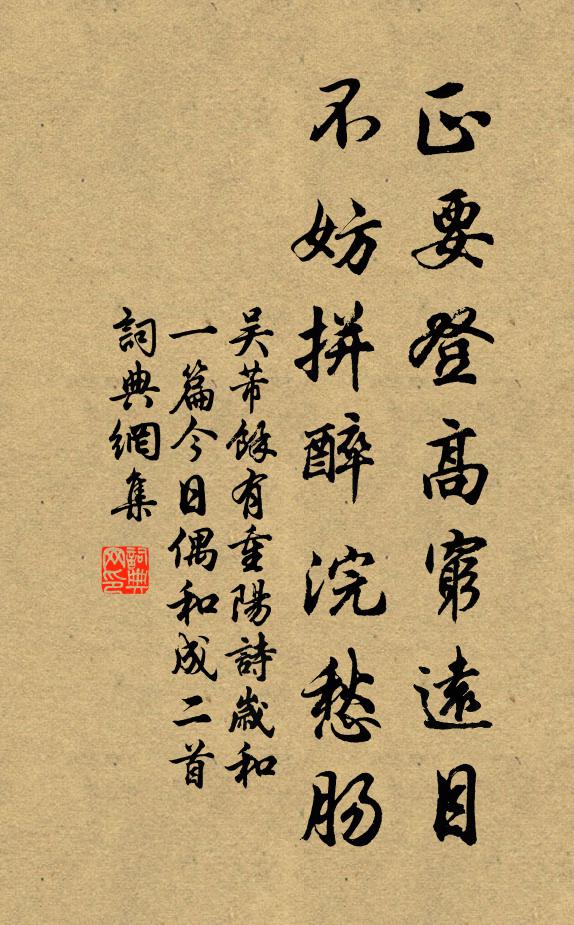 正要登高窮遠目
不妨拼醉浣愁腸
吴芾餘有重陽詩歲和
一篇今日偶和成二首
詞典網集
詞典网印